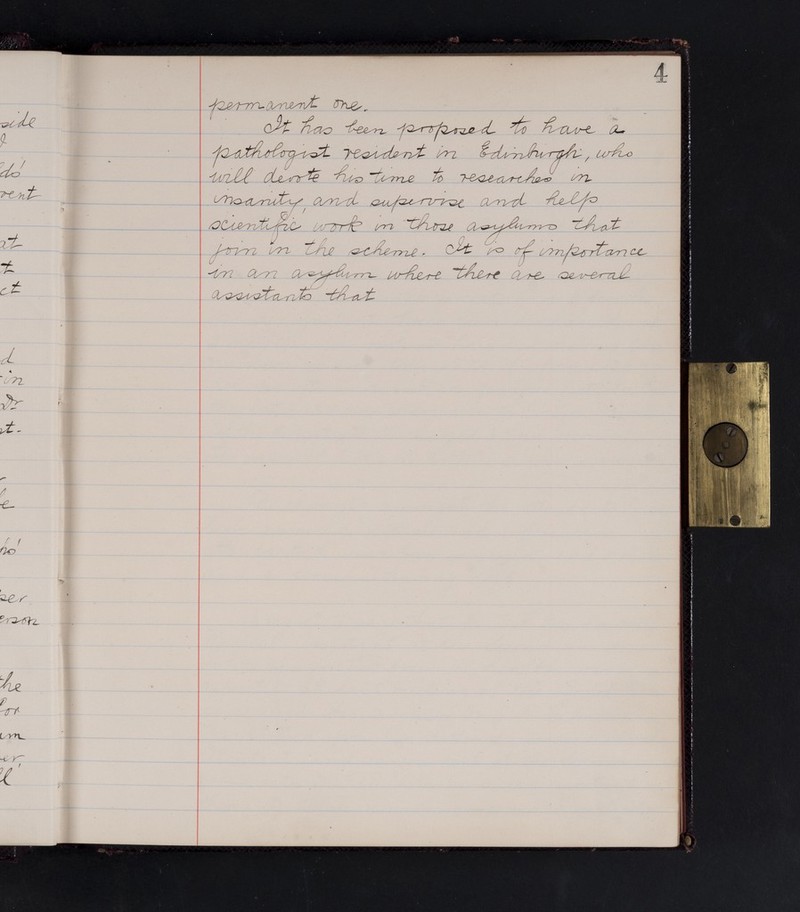 side
ds'
rent
at
t
ct
d
in
Dr
st.
be
his'
per
erson
the
for
um
er,
ll
4
permanent one.
It has been proposed to have a
pathologist resident in Edinburgh, who
will devote his time to researches in
insanity, and supervise and help
scientific work in those asylums that
join in the scheme. It is of importance
in an asylum where there are several
assistants that